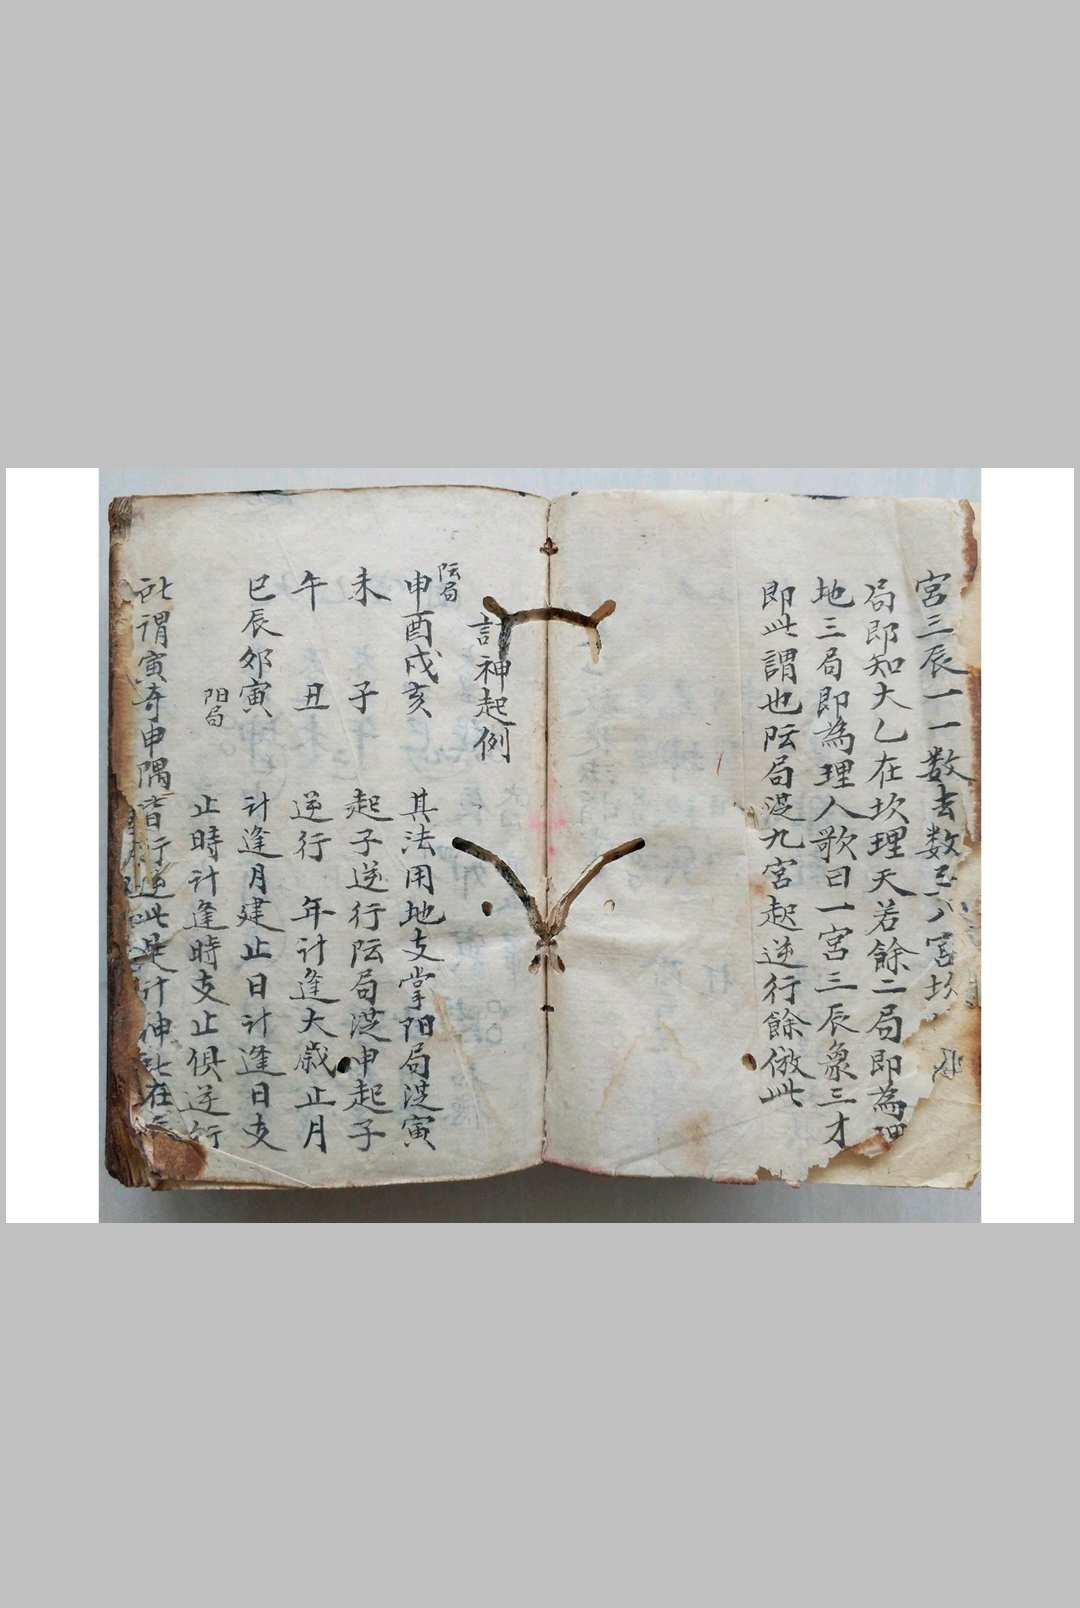 宮三辰一一数去数至八宮坎
局即知大乙在坎理天若餘二局即為理
地三局即為理人歌曰一宮三辰象三才
即此謂也阮局從九宮起逆行餘倣此
計神起例
阮局
申酉戌亥 其法用地支掌阳局從寅
未 子 起子逆行阮局從申起子
午 丑 逆行 年计逢大歳止月
巳辰卯寅 计逢月建止日计逢日支
阳局
止時计逢時支止俱逆行
謂寅奇申隅皆行逆此是计神